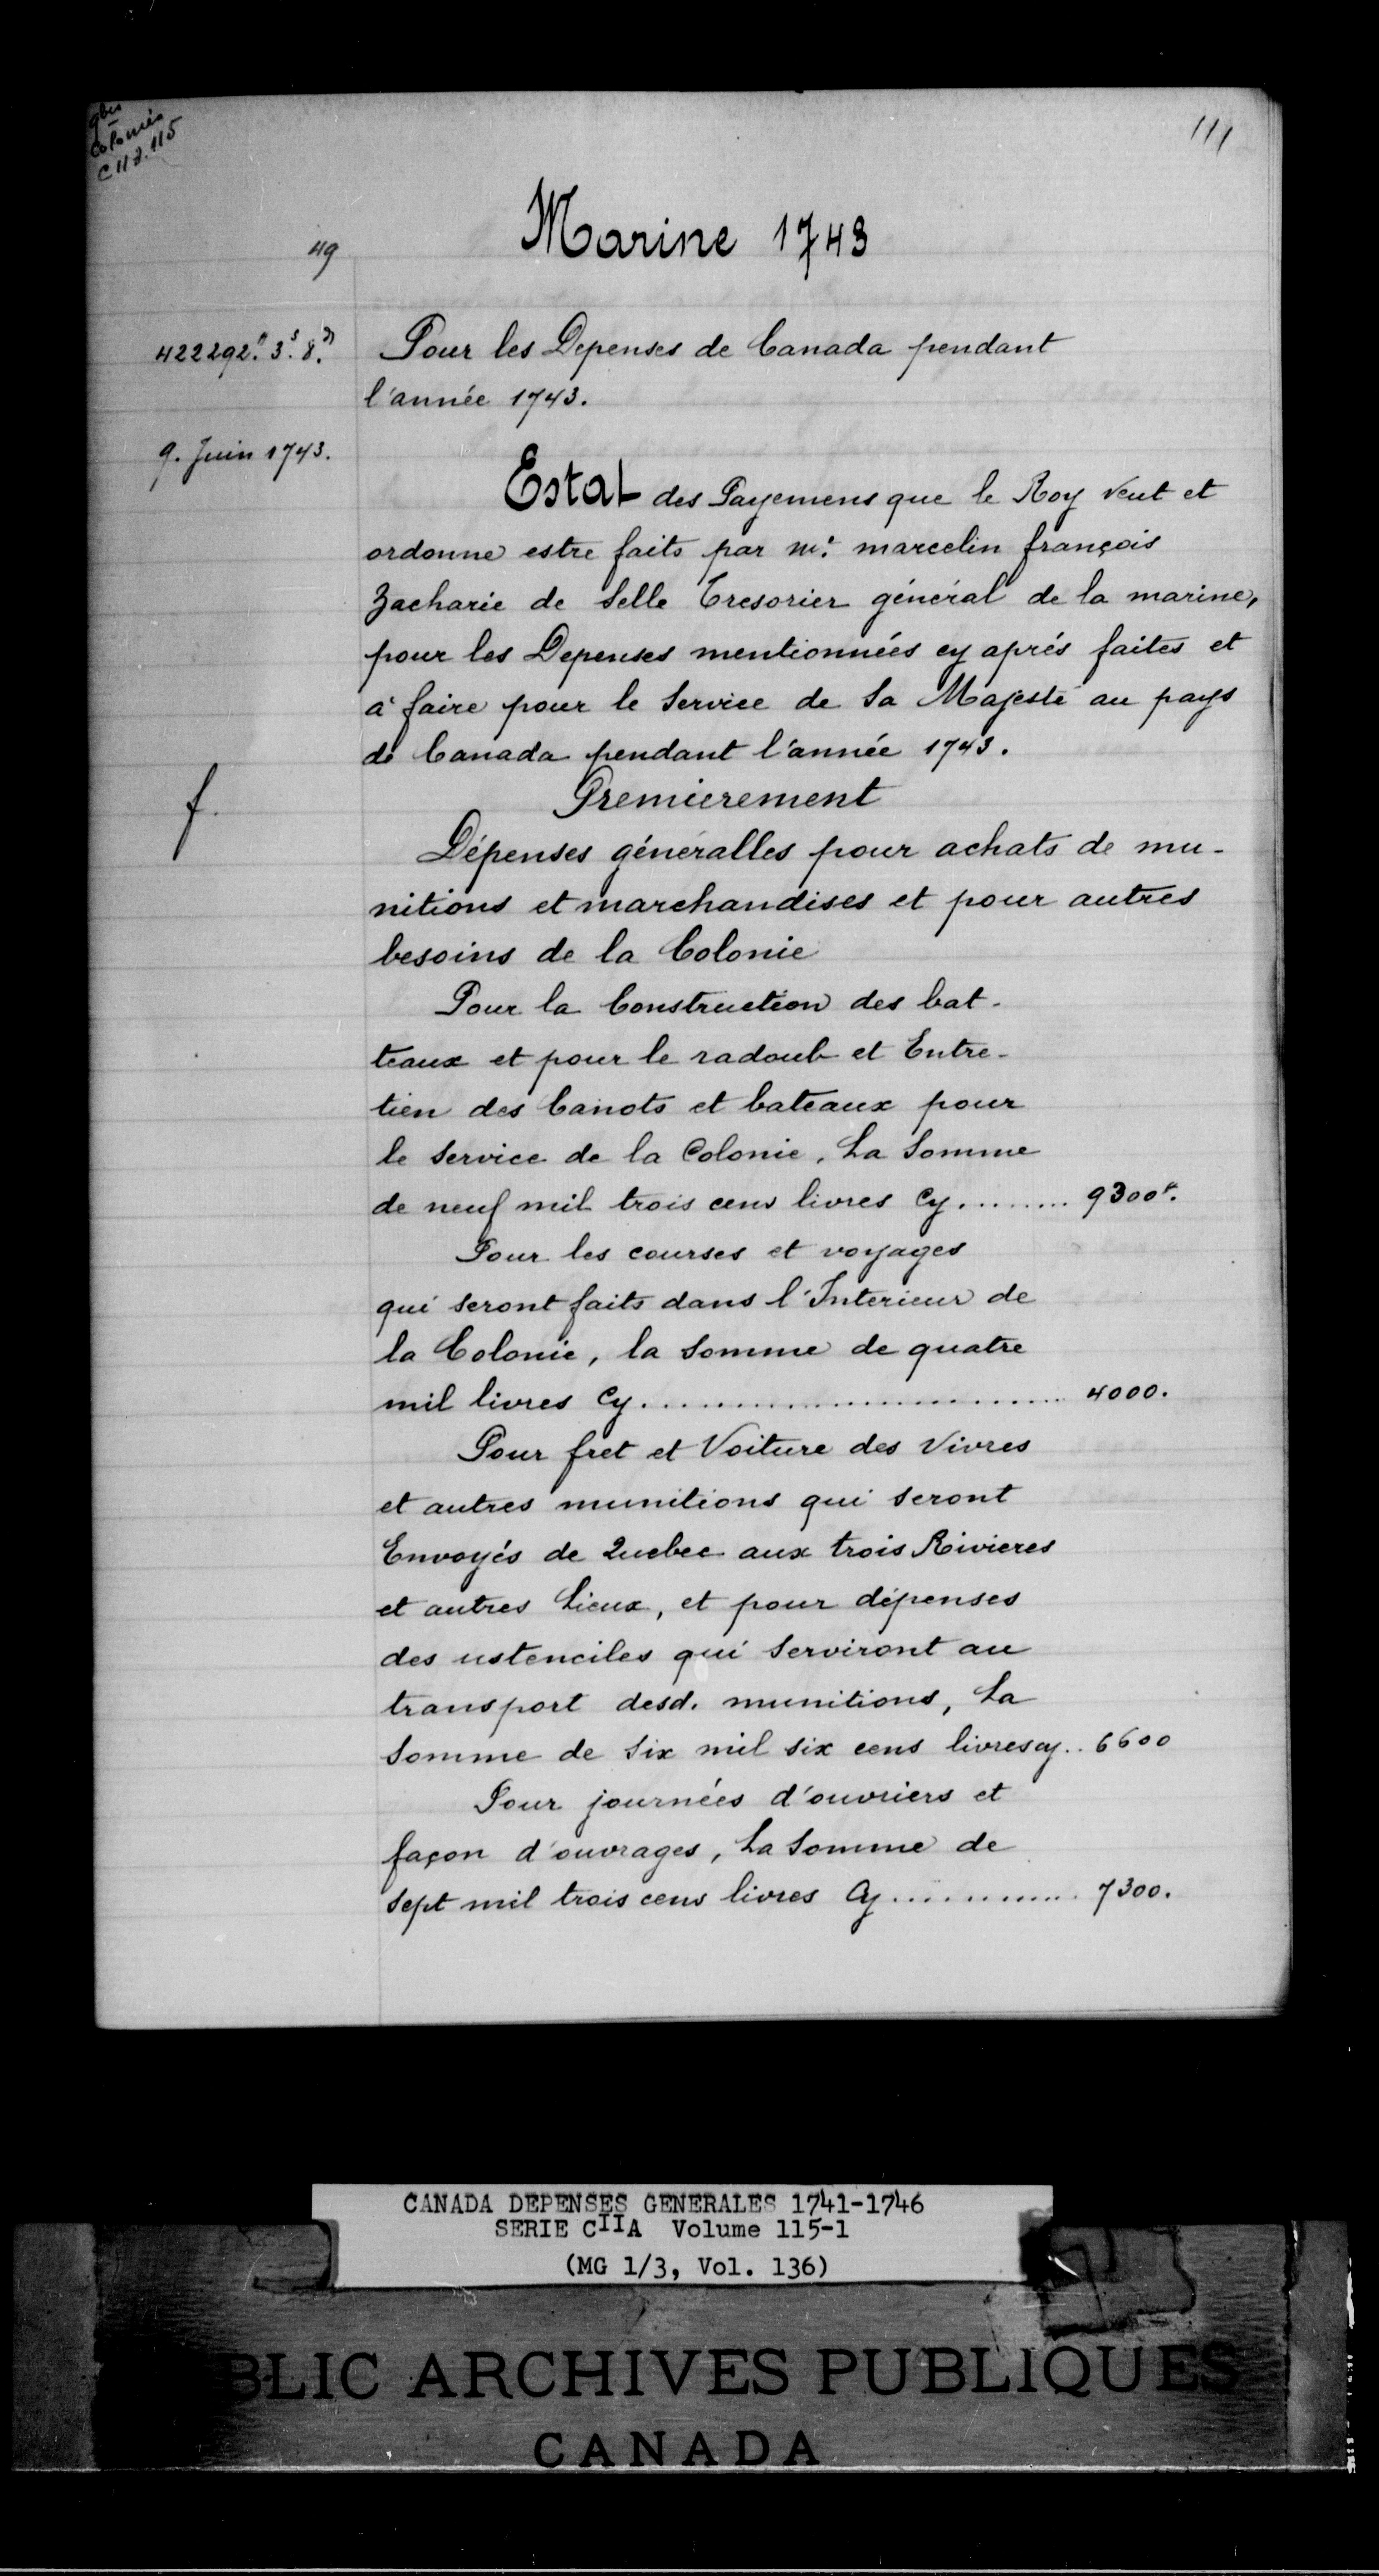 Colonies
C 11 a. 115
111
Marine 1743
49
422292.# 3.s 8.d
Pour les Depenses de Canada pendant
l'année 1743.
9. Juin 1743.
Estat des Payemens que le Roy veut et
ordonne estre faits par mr. marcelin françois
Zacharie de Selle Tresorier général de la marine,
pour les Depenses mentionnées cy aprés faites et
à faire pour le Service de Sa Majesté au pays
de Canada pendant l'année 1743.
f.
Premierement
Dépenses généralles pour achats de mu-
nitions et marchandises et pour autres
besoins de la Colonie
Pour la Construction des bat-
teaux et pour le radoub et Entre-
tien des Canots et bateaux pour
le Service de la Colonie, La Somme
de neuf mil trois cens livres Cy......... 9300#.
Pour les courses et voyages
qui seront faits dans l'Interieur de
la Colonie, la Somme de quatre
mil livres Cy........................... 4000.
Pour fret et Voiture des Vivres
et autres munitions qui seront
Envoyés de Quebec aux trois Rivieres
et autres Lieux, et pour dépenses
des ustenciles qui Serviront au
transport desd. munitions, La
Somme de Six mil six cens livres cy.. 6600
Pour journées d'ouvriers et
façon d'ouvrages, La Somme de
Sept mil trois cens livres Cy............ 7300.
CANADA DEPENSES GENERALES 1741-1746
SERIE CIIA Volume 115-1
(MG 1/3, Vol. 136)
BLIC ARCHIVES PUBLIQUES
CANADA